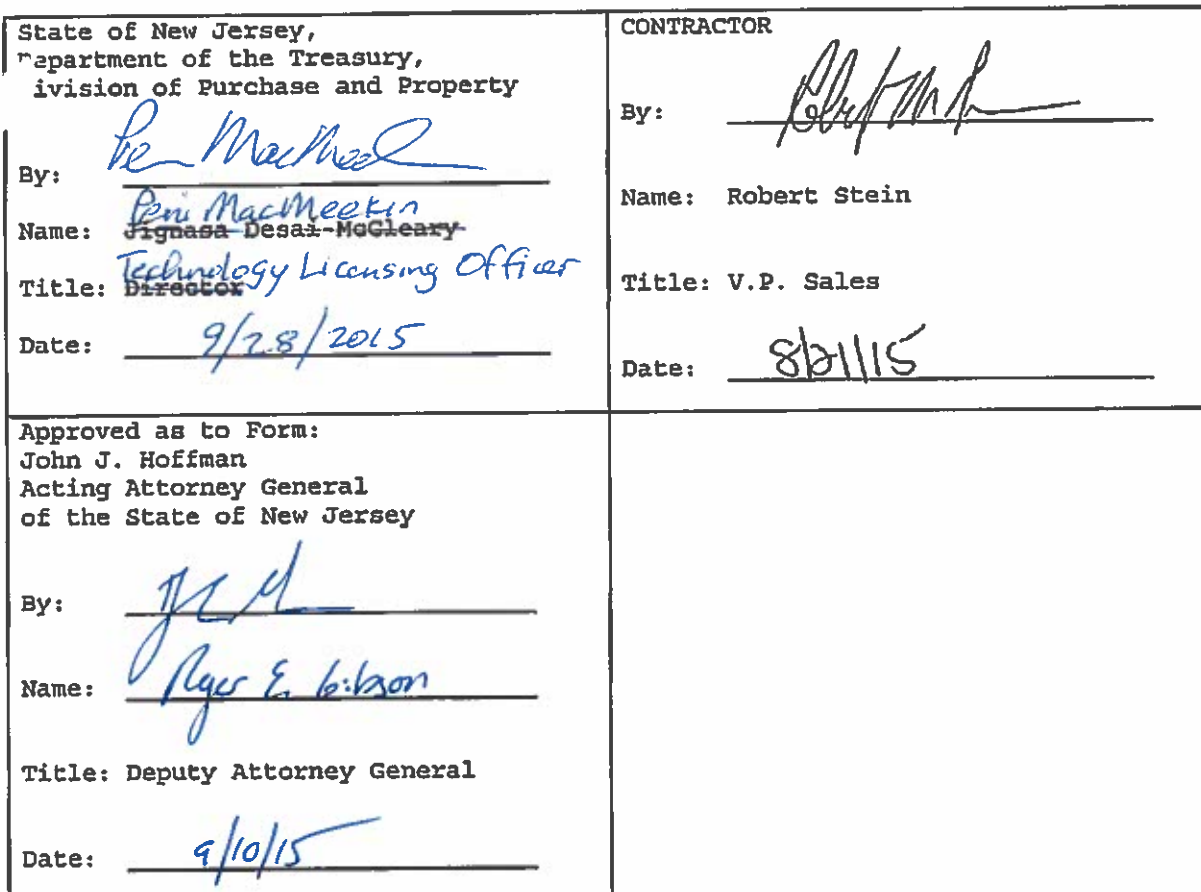 State of New Jersey,
epartment of the Treasury,
ivision of Purchase and Property
By: Peri MacMeekin
Peri MacMeekin
Name: Jignasa Desai-McCleary
Technology Licensing Officer
Title: Director
Date: 9/28/2015
CONTRACTOR
By:
Name: Robert Stein
Title: V.P. Sales
Date: 8/21/15
Approved as to Form:
John J. Hoffman
Acting Attorney General
of the State of New Jersey
By:
Name: Roger E. Gibson
Title: Deputy Attorney General
Date: 9/10/15